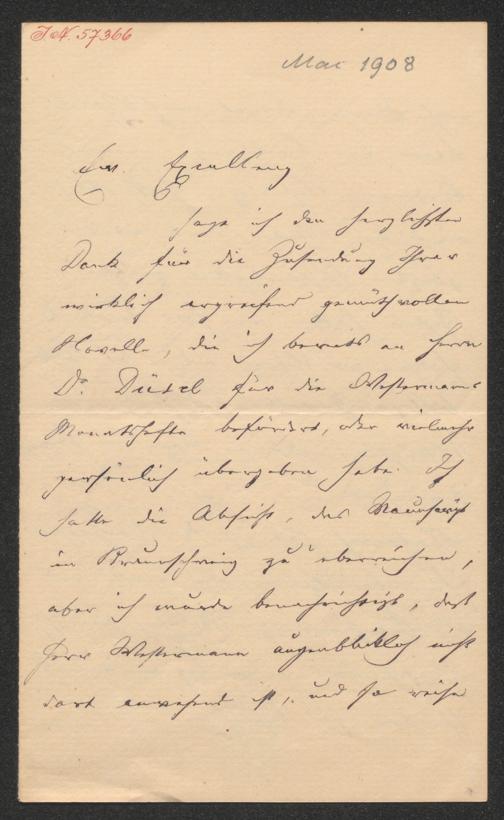 J.N. 57366
Mai 1908
Ew. Excellenz
sage ich den herzlichsten
Dank für die Zusendung Ihrer
wirklich ergreifend gemüthvollen
Novelle, die ich bereits an Herrn
Dr. Düsel für die Westermanns
Monatshefte befördert, oder vielmehr
persönlich übergeben habe. Ich
hatte die Absicht, das Manuscript
in Braunschweig zu überreichen,
aber ich wurde benachrichtigt, daß
Herr Westermann augenblicklich nicht
dort anwesend ist, und so reise